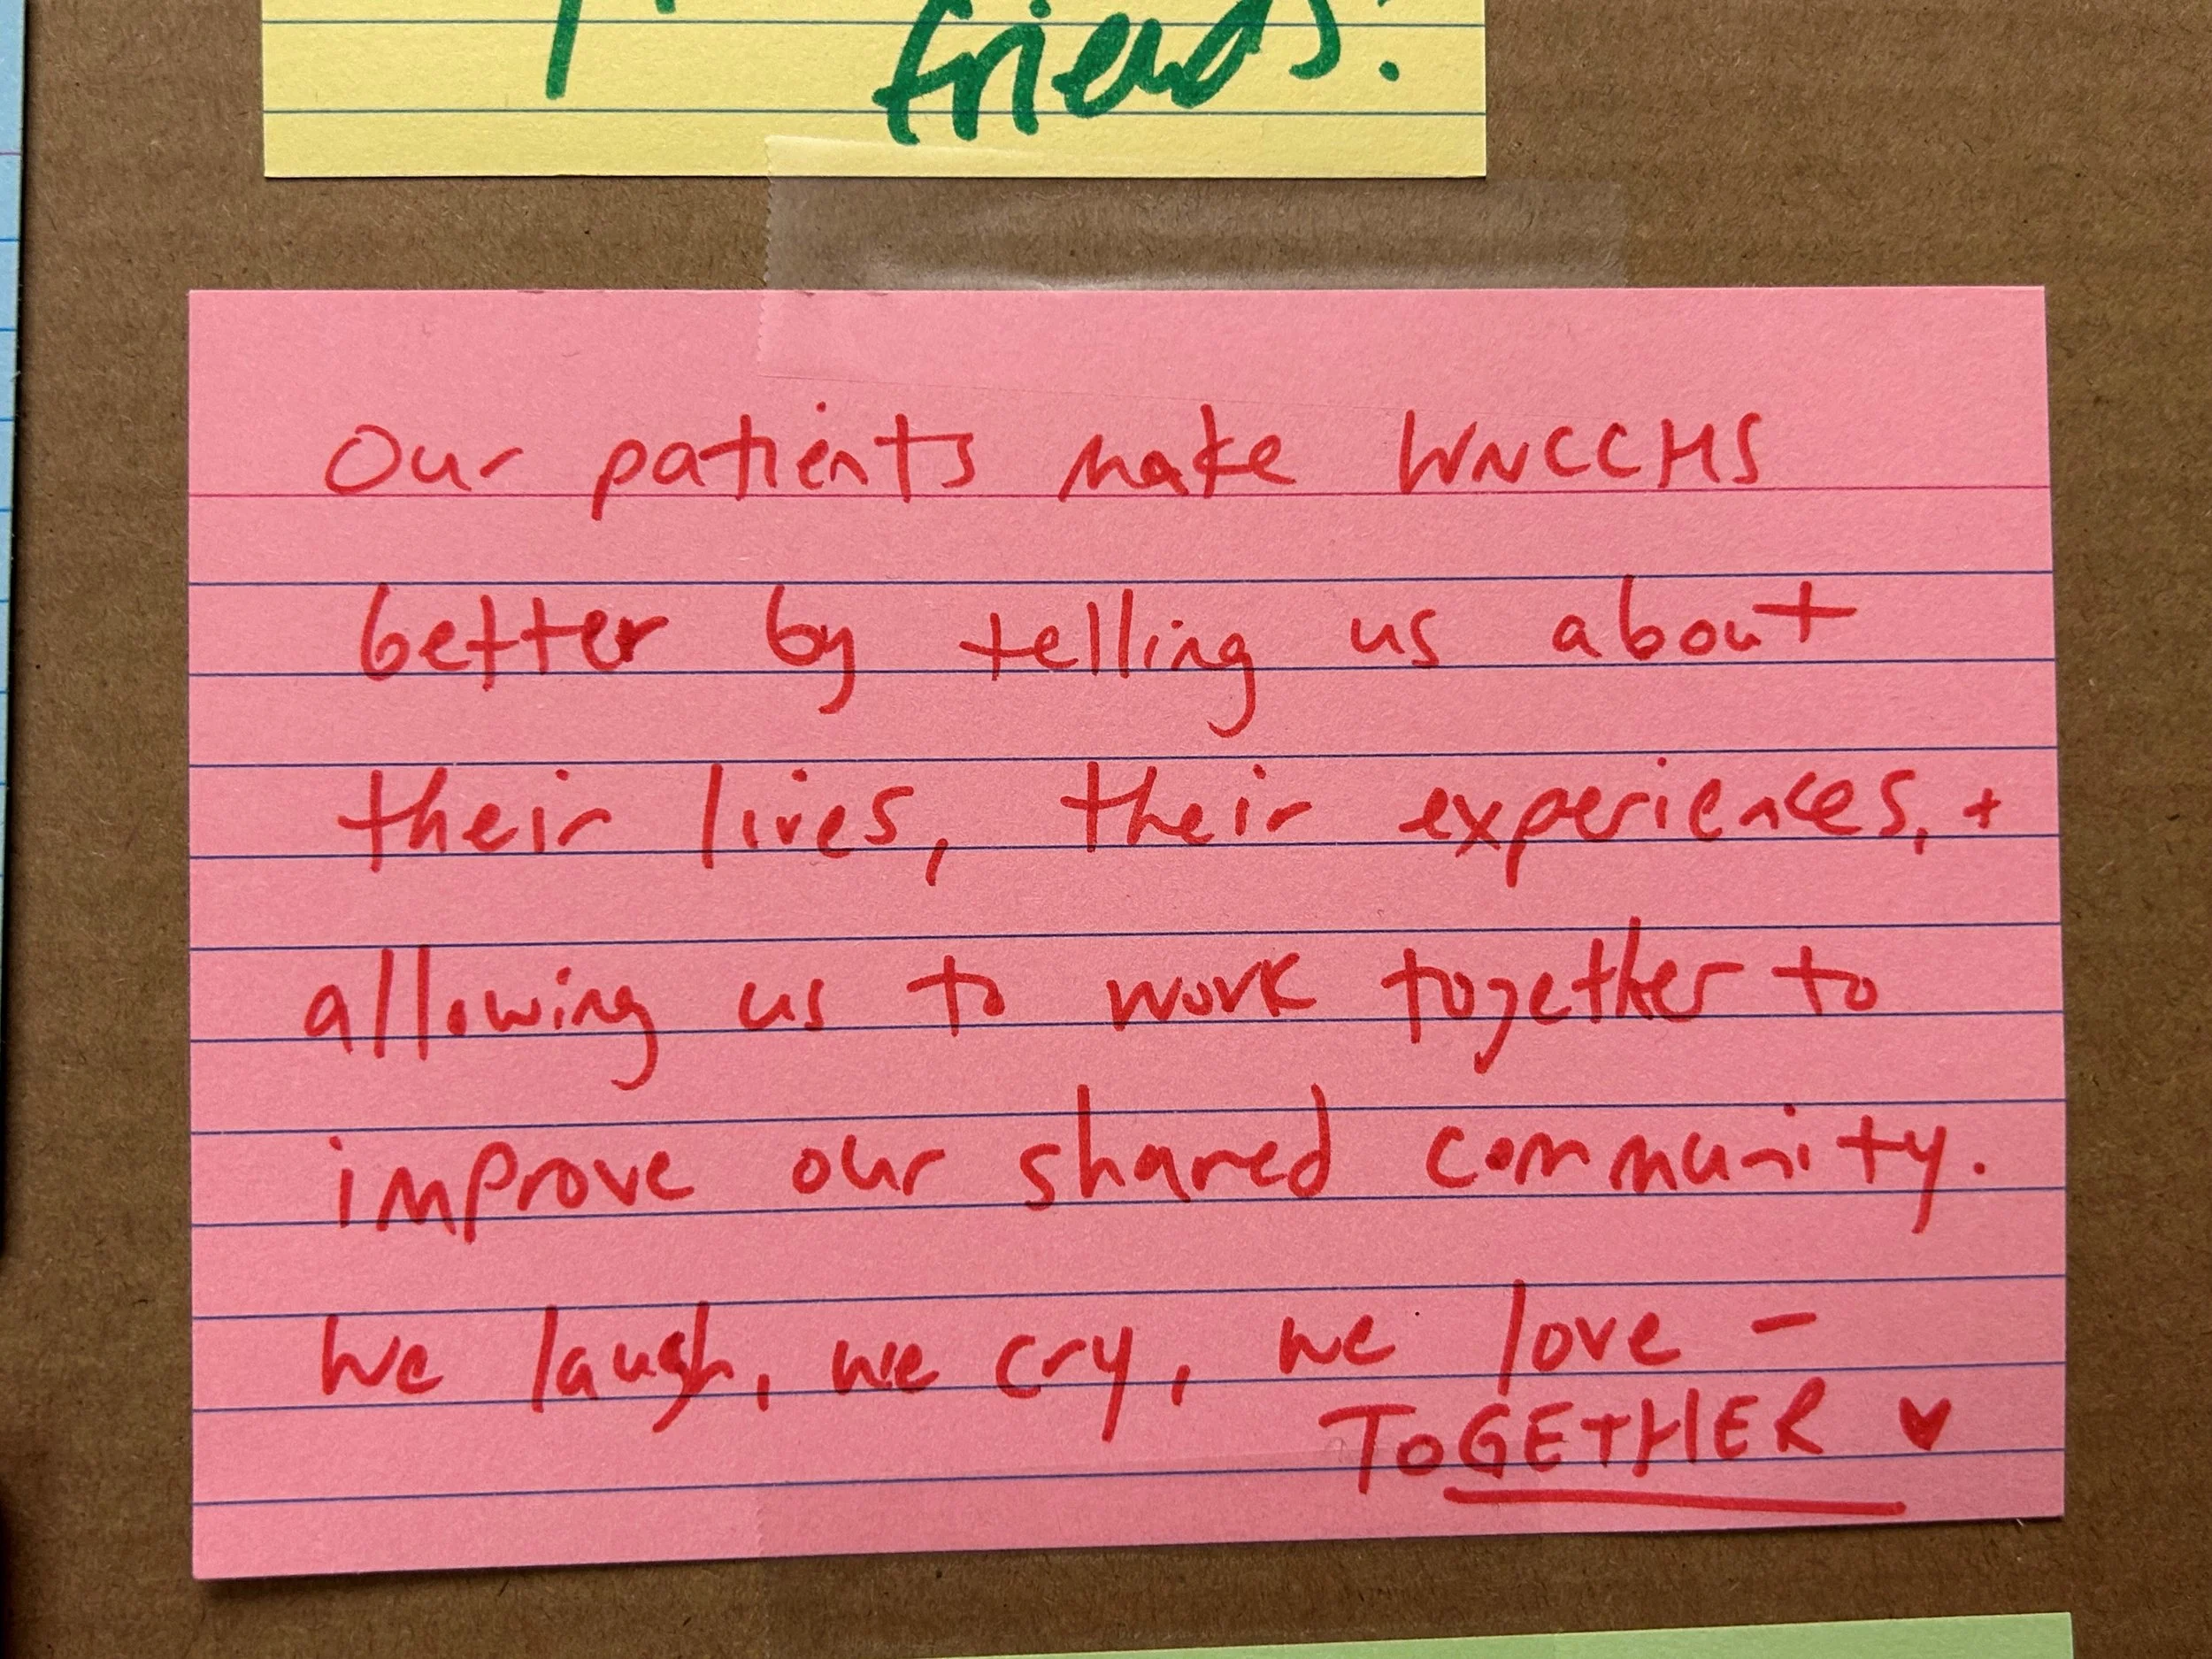 friends!
Our patients make WNCCHS
better by telling us about
their lives, their experiences, +
allowing us to work together to
improve our shared community.
We laugh, we cry, we love -
TOGETHER ♥